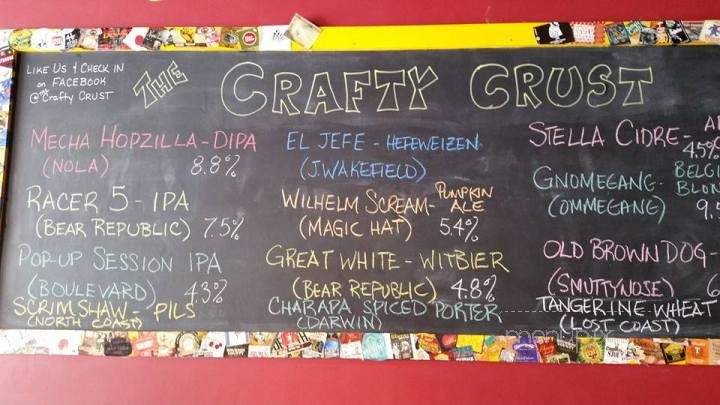 LIKE US & CHECK IN
on FACEBOOK
@ the Crafty CRUST
THE CRAFTY CRUST
MECHA HOPZILLA - DIPA
(NOLA) 8.8%
RACER 5 - IPA
(BEAR REPUBLIC) 7.5%
POP-UP SESSION IPA
(BOULEVARD) 4.3%
SCRIMSHAW - PILS
(NORTH COAST)
EL JEFE - HEFEWEIZEN
(J.WAKEFIELD)
WILHELM SCREAM - PUMPKIN ALE
(MAGIC HAT) 5.4%
GREAT WHITE - WITBIER
(BEAR REPUBLIC) 4.8%
CHARAPA SPICED PORTER
(DARWIN)
STELLA CIDRE -
4.5%
GNOMEGANG -
(OMMEGANG) 9.
OLD BROWN DOG -
(SMUTTYNOSE) 6
TANGERINE WHEAT
(LOST COAST)